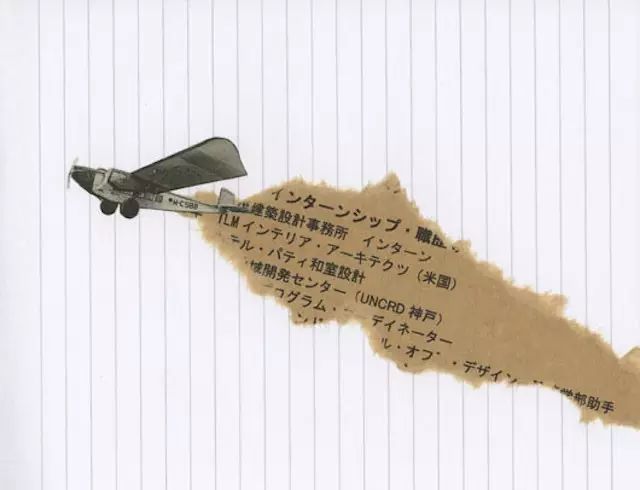 M-C588
インターンシップ・職歴
建築設計事務所 インターン
ILMインテリア・アーキテクツ（米国）
テル・パティ和室設計
域開発センター（UNCRD 神戸）
ログラム・ ディネーター
ル・オブ・デザイン 学部助手